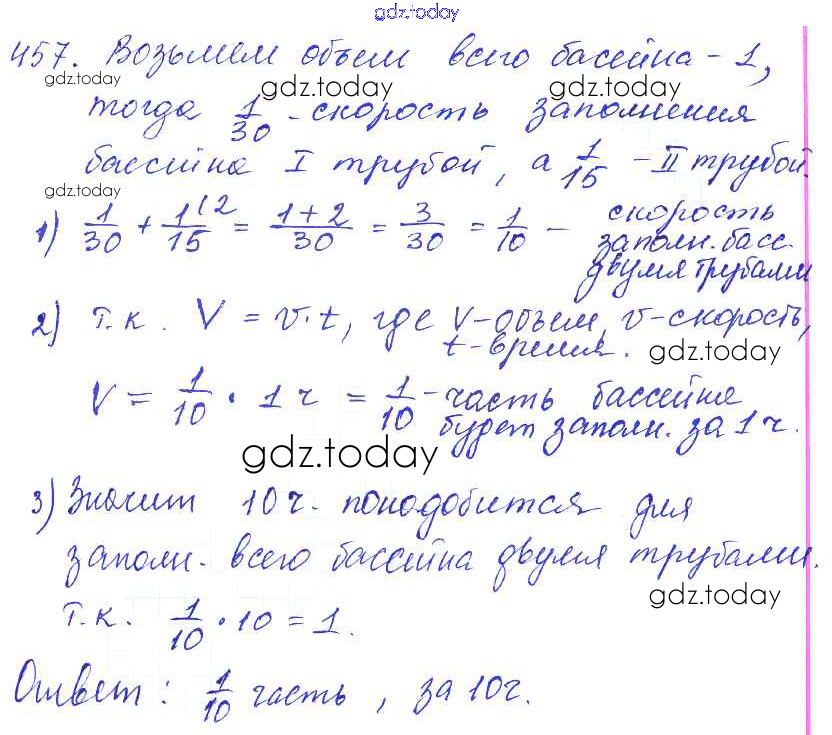 gdz.today
457. Возьмем объем всего басейна - 1,
gdz.today gdz.today
тогда 1/30 - скорость заполнения
бассейна I трубой, а 1/15 - II трубой.
gdz.today gdz.today
1) 1/30 + 1/15 (2 = 1+2/30 = 3/30 = 1/10 - скорость
заполн. басс.
двумя трубами
2) т.к. V = v·t, где V-объем, v-скорость,
t-время.
gdz.today
V = 1/10 · 1 ч = 1/10 - часть бассейна
будет заполн. за 1 ч.
gdz.today
3) Значит 10 ч. понадобится для
заполн. всего бассейна двумя трубами.
gdz.today
т.к. 1/10 · 10 = 1.
Ответ: 1/10 часть, за 10 ч.